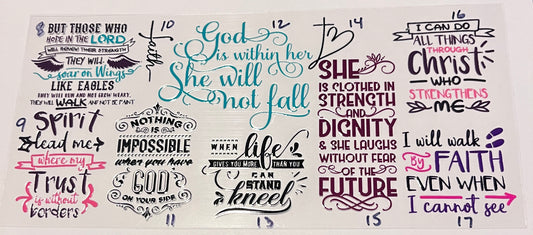 8
BUT THOSE WHO
HOPE IN THE LORD
WILL RENEW THEIR STRENGTH
THEY WILL
soar on Wings
LIKE EAGLES
THEY WILL RUN AND NOT GROW WEARY,
THEY WILL WALK AND NOT BE FAINT
9
Spirit
lead me
where my
Trust
is without
borders
10
faith
NOTHING
IS
IMPOSSIBLE
when you have
GOD
ON YOUR SIDE
11
12
God
is within her
She will
not fall
WHEN life
GIVES YOU MORE THAN YOU
CAN
STAND
kneel
13
14
SHE
IS CLOTHED IN
STRENGTH
AND
DIGNITY
& SHE LAUGHS
WITHOUT FEAR
OF THE
FUTURE
15
16
I CAN DO
ALL THINGS
THROUGH
Christ
WHO
STRENGTHENS
ME
I will walk
BY FAITH
EVEN WHEN
I cannot see
17